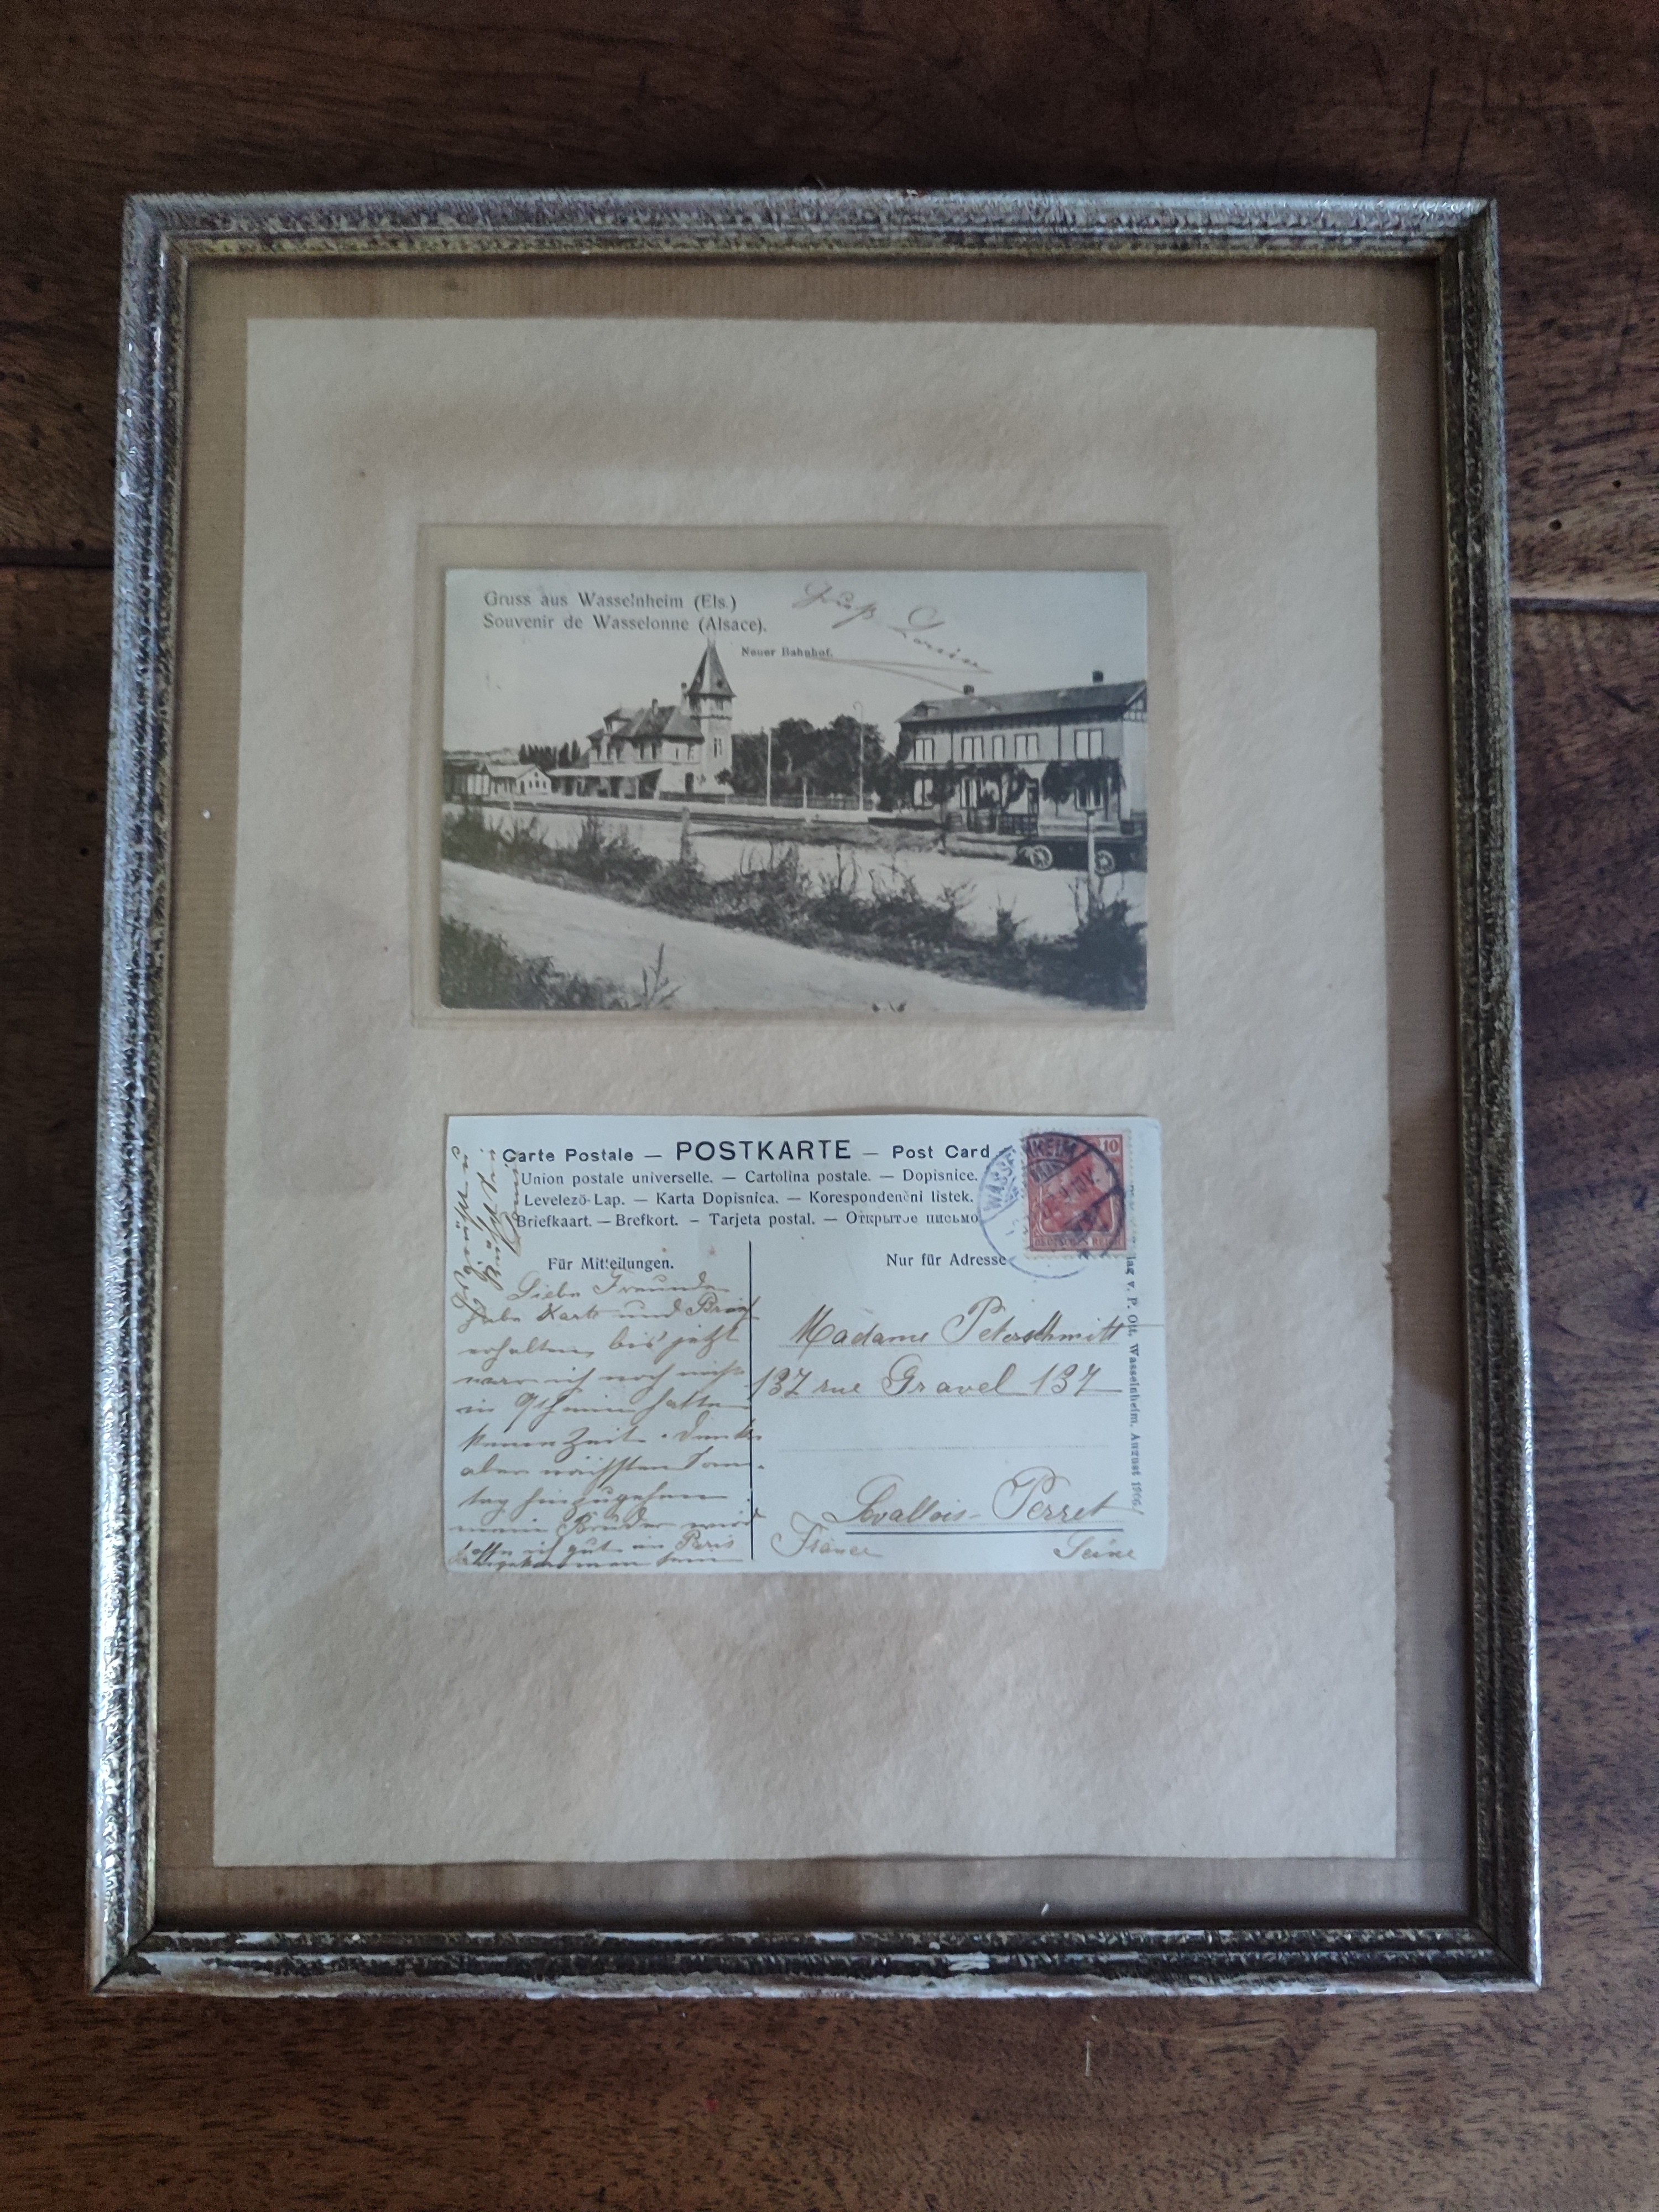 Gruss aus Wasselnheim (Els.)
Souvenir de Wasselonne (Alsace).
Neuer Bahnhof.
Gruß
Carte Postale — POSTKARTE — Post Card
Union postale universelle. — Cartolina postale. — Dopisnice.
Levelező-Lap. — Karta Dopisnica. — Korespondenční listek.
Briefkaart. — Brefkort. — Tarjeta postal. — Открытое письмо
WASSELNHEIM
10
DEUTSCHES REICH
Für Mitteilungen.
Nur für Adresse
Liebe Freunde
habe Karte und Brief
erhalten, bis jetzt
war ich noch nicht
in hatte
keine Zeit. Denke
aber nächsten Sonn-
tag hinzugehen.
mein Bruder wird
hoffe ich gut in Paris
angekommen sein
Madame Peterschmitt
137 rue Gravel 137
Levallois-Perret
France Seine
v. P. Ott, Wasselnheim, August 1906.